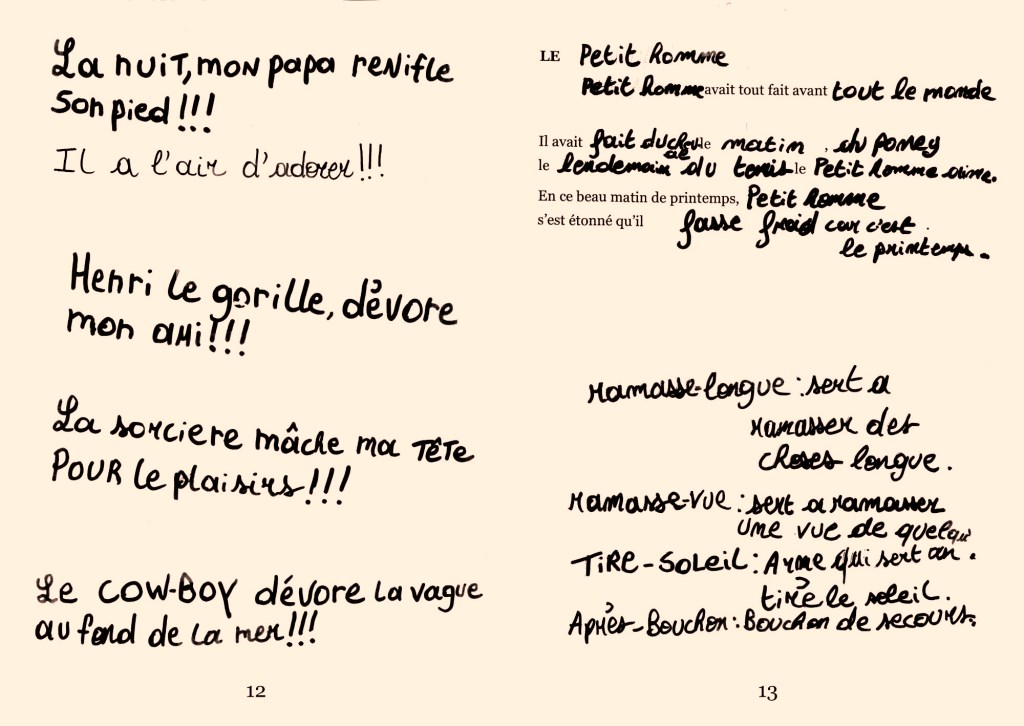 La nuit, mon papa renifle
Son pied !!!
Il a l'air d'adorer !!!
Henri le gorille, dévore
mon ami !!!
La sorciere mâche ma tête
POUR le plaisirs !!!
Le COW-BOY dévore la vague
au fond de la mer !!!
12
LE Petit homme
Petit homme avait tout fait avant tout le monde
Il avait fait du le matin , du poney
le lendemain du tenis le Petit homme aime.
En ce beau matin de printemps, Petit homme
s'est étonné qu'il fasse froid car c'est
le printemps.
ramasse-longue : sert a
ramasser des
choses longue.
ramasse-vue : sert a ramasser
une vue de quelqu
TIRE-SOLEIL : Arme qui sert an.
tirère le soleil.
Après-Bouchon : Bouchon de secours.
13